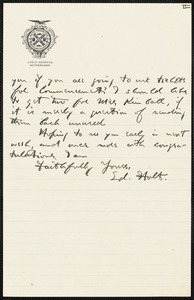 you if you all going to use tickets
for Commencement? I should like
to get two for Miss Kimball, if
it is merely a question of sending
them back unused.
Hoping to see you early in next
week, and once more with congra-
tulations, I am
Faithfully Yours,
Ed. Holt.